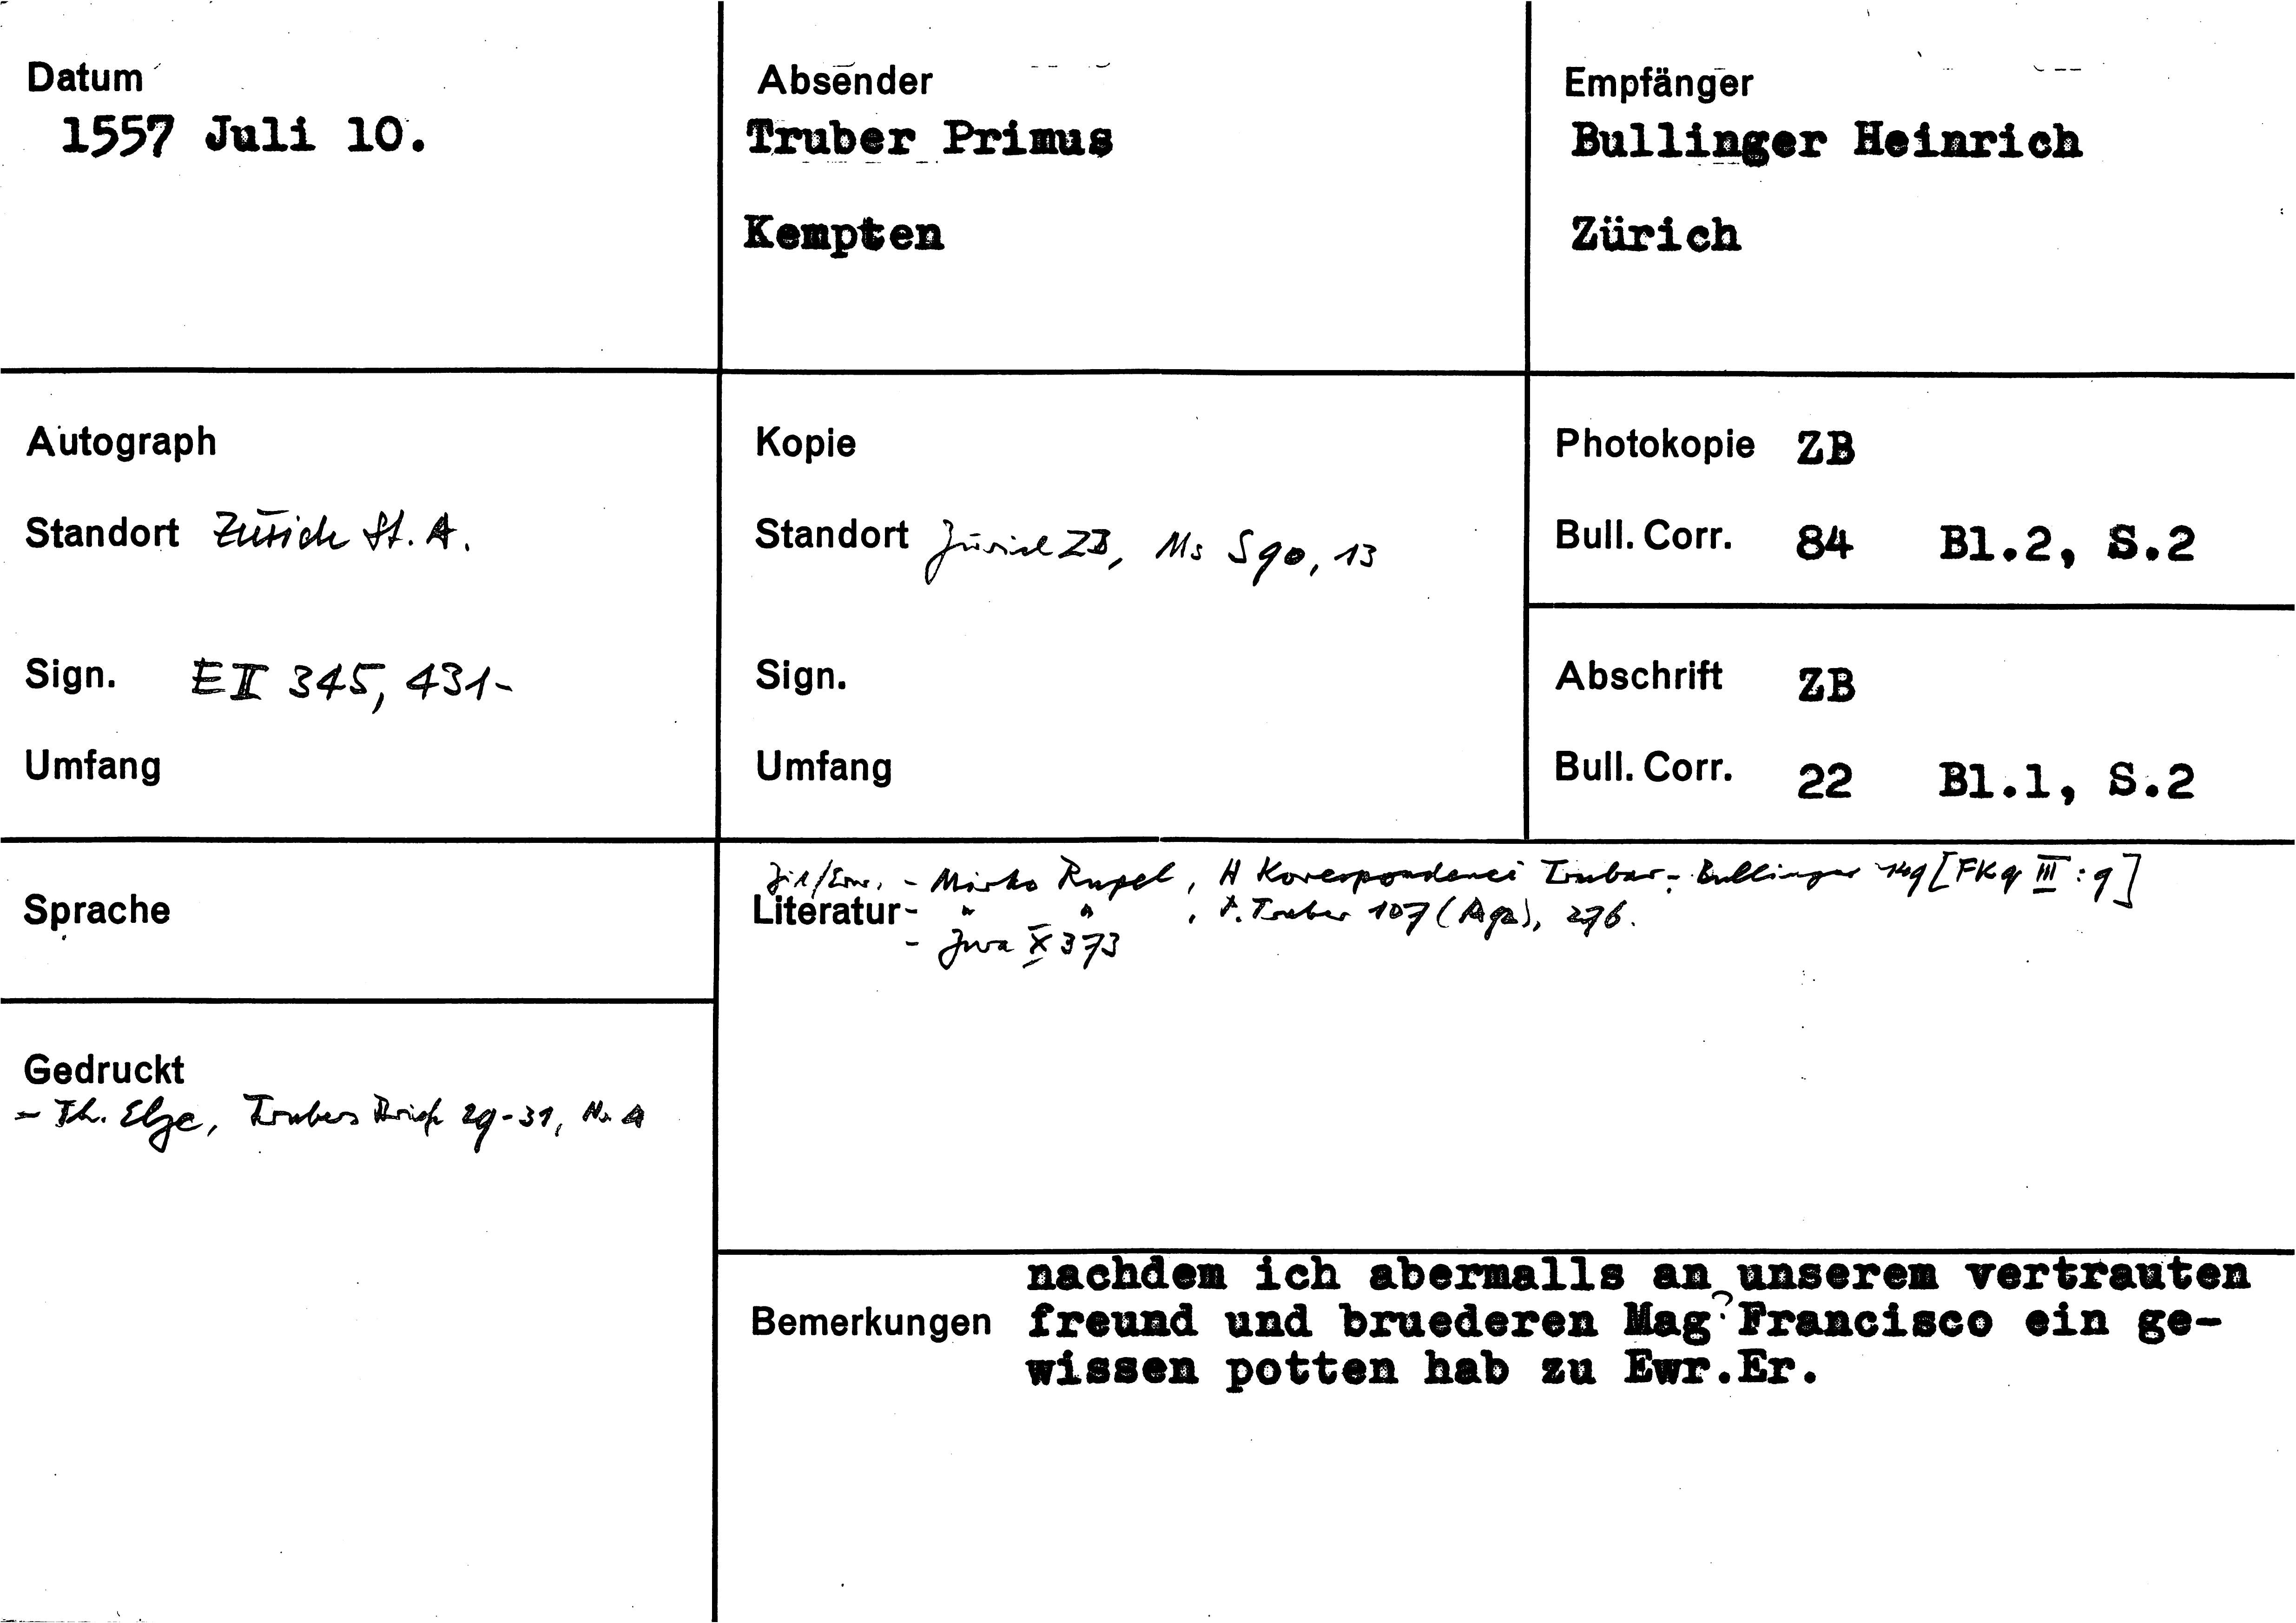 Datum
1557 Juli 10.
Absender
Truber Primus
Kempten
Empfänger
Bullinger Heinrich
Zürich
Autograph
Standort Zürich St. A.
Sign. E II 345, 431-
Umfang
Kopie
Standort Zürich ZB, Ms S 90, 13
Sign.
Umfang
Photokopie ZB
Bull. Corr. 84 Bl.2, S.2
Abschrift ZB
Bull. Corr. 22 Bl.1, S.2
Sprache
Gedruckt
- Th. Elze, Trubers Briefe 29-31, Nr. 4
Zit/Erw. - Mirko Rupel, H Korespondenci Trubar-Bullinger 149 [FKq III : 9]
Literatur - " " , P. Truber 107 (A92), 276.
- Zwa X 373
Bemerkungen
nachdem ich abermalls an unserem vertrauten
freund und bruederen Mag? Francisco ein ge-
wissen potten hab zu Ewr.Er.